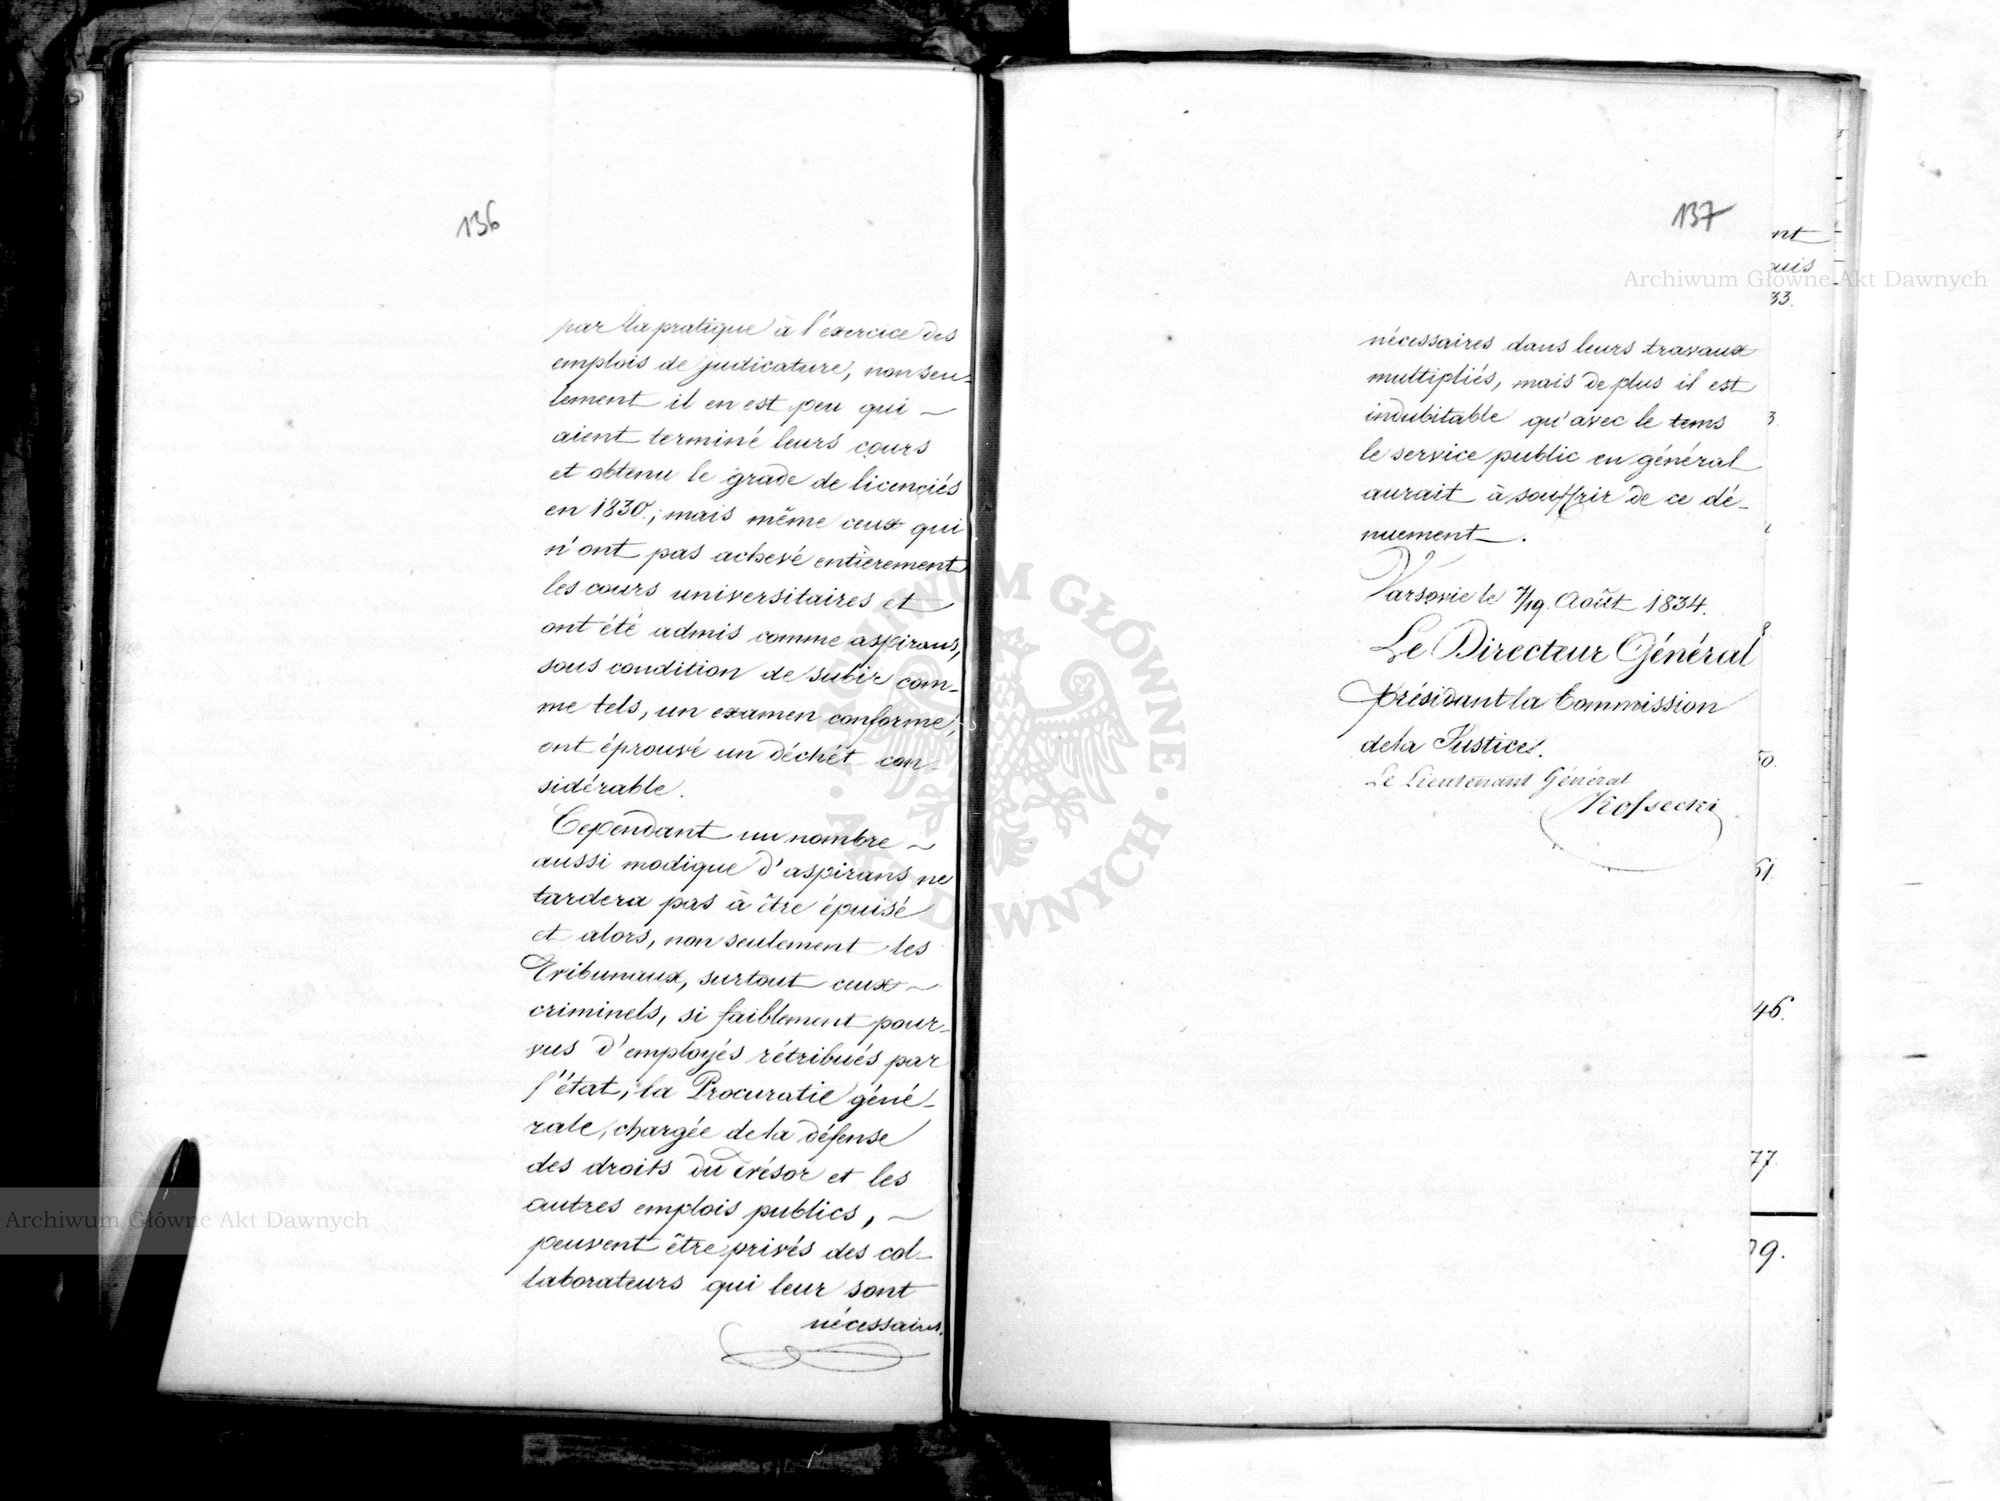 136
par la pratique à l'exercice des
emplois de judicature, non seu-
lement il en est peu qui ~
aient terminé leurs cours
et obtenu le grade de licenciés
en 1830.; mais même ceux qui
n'ont pas achevé entièrement
les cours universitaires et
ont été admis comme aspirans,
sous condition de subir com-
me tels, un examen conforme,
ont éprouvé un déchêt con-
sidérable.
Cependant un nombre ~
aussi modique d'aspirans ne
tardera pas à être épuisé
et alors, non seulement les
Tribunaux, surtout ceux ~
criminels, si faiblement pour-
vus d'employés rétribués par
l'état, la Procuratie géné-
rale, chargée de la défense
des droits du Trésor et les
autres emplois publics, ~
peuvent être privés des col-
laborateurs qui leur sont
nécessaires.
137
nécessaires dans leurs travaux
multipliés, mais de plus il est
indubitable qu'avec le tems
le service public en général
aurait à souffrir de ce dé-
nuement.
Varsovie le 7/19. Août 1834.
Le Directeur Général
présidant la Commission
de la Justice.
Le Lieutenant Général
Kossecki
nt
uis
33.
3.
50.
61
46.
77.
79.
Archiwum Główne Akt Dawnych
Archiwum Główne Akt Dawnych
ARCHIWUM GŁÓWNE · AKT DAWNYCH ·